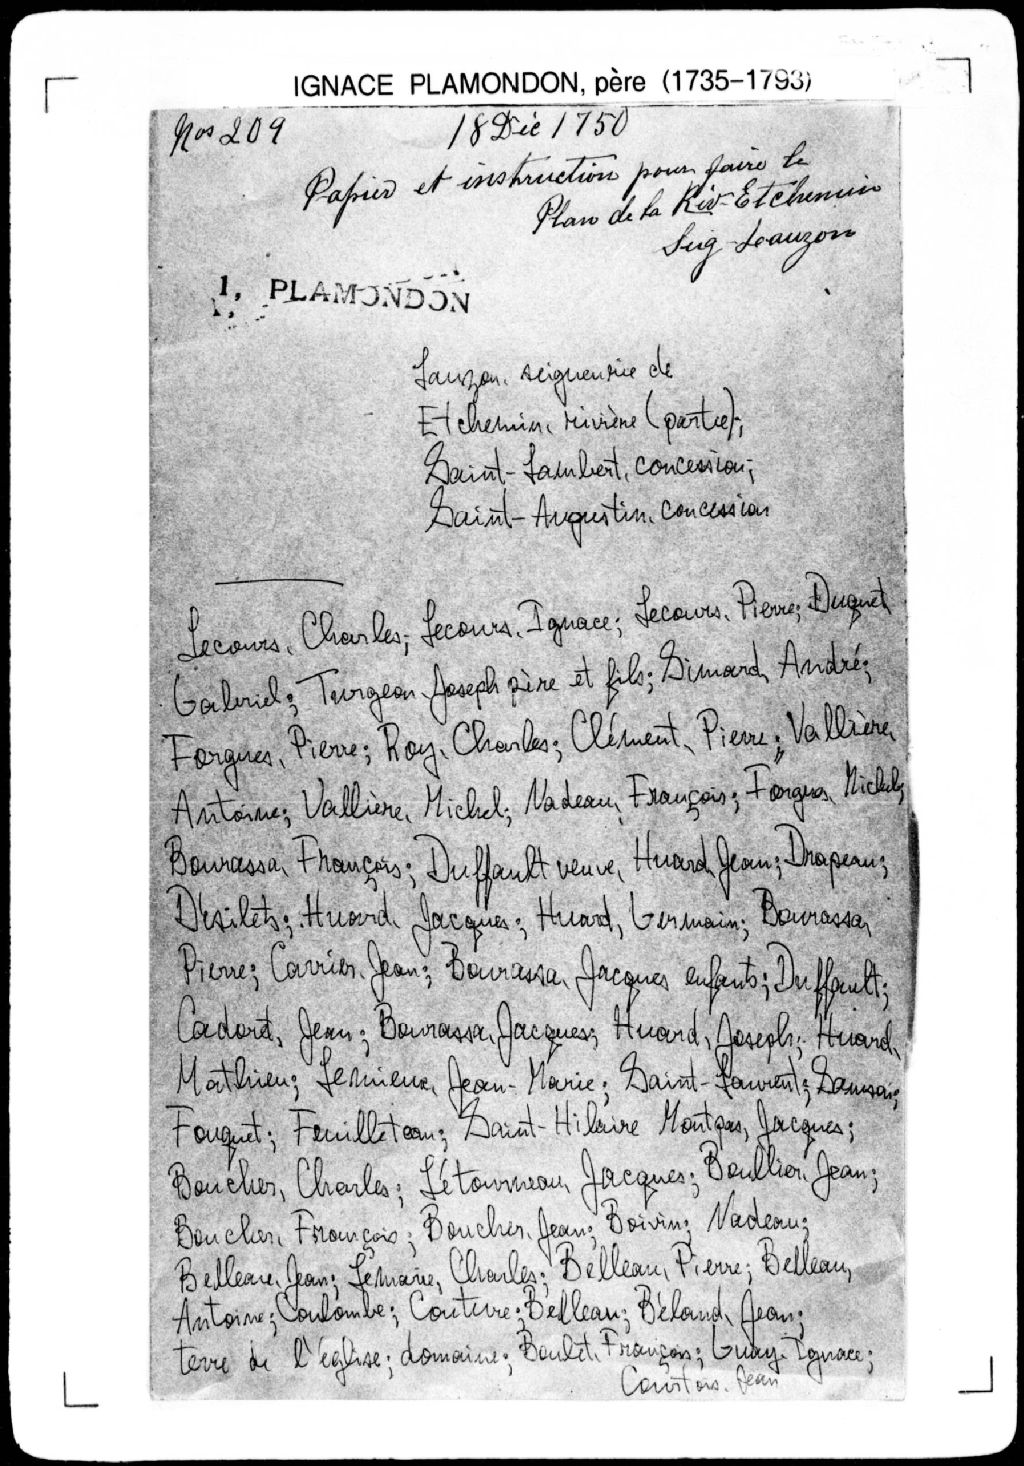 IGNACE PLAMONDON, père (1735-1793)
Nos 209 18 Déc 1750
Papier et instruction pour faire le
Plan de la Riv. Etchemin
Seig Lauzon
1, PLAMONDON
Lauzon, seigneurie de
Etchemin, rivière (partie);
Saint-Lambert, concession;
Saint-Augustin, concession
Lecours, Charles; Lecours, Ignace; Lecours, Pierre; Duquet,
Gabriel; Turgeon Joseph père et fils; Simard, André;
Forgues, Pierre; Roy, Charles; Clément, Pierre; Vallière,
Antoine; Vallière, Michel; Nadeau, François; Forgues, Michel;
Bourassa, François; Duffault veuve, Huard, Jean; Drapeau;
Désilets; Huard, Jacques; Huard, Germain; Bourassa,
Pierre; Carrier, Jean; Bourassa, Jacques enfants; Duffault;
Cadoret, Jean; Bourassa, Jacques; Huard, Joseph; Huard,
Mathieu; Lemieux, Jean-Marie; Saint-Laurent; Samson;
Fouquet; Feuilleteau; Saint-Hilaire Montpas, Jacques;
Boucher, Charles; Létourneau, Jacques; Boullier, Jean;
Boucher, François; Boucher, Jean; Boivin; Nadeau;
Belleau, Jean; Lemarié, Charles; Belleau, Pierre; Belleau,
Antoine; Coulombe; Couture; Belleau; Béland, Jean;
terre de l'église; domaine; Boulet, François; Guay, Ignace;
Courtois, Jean